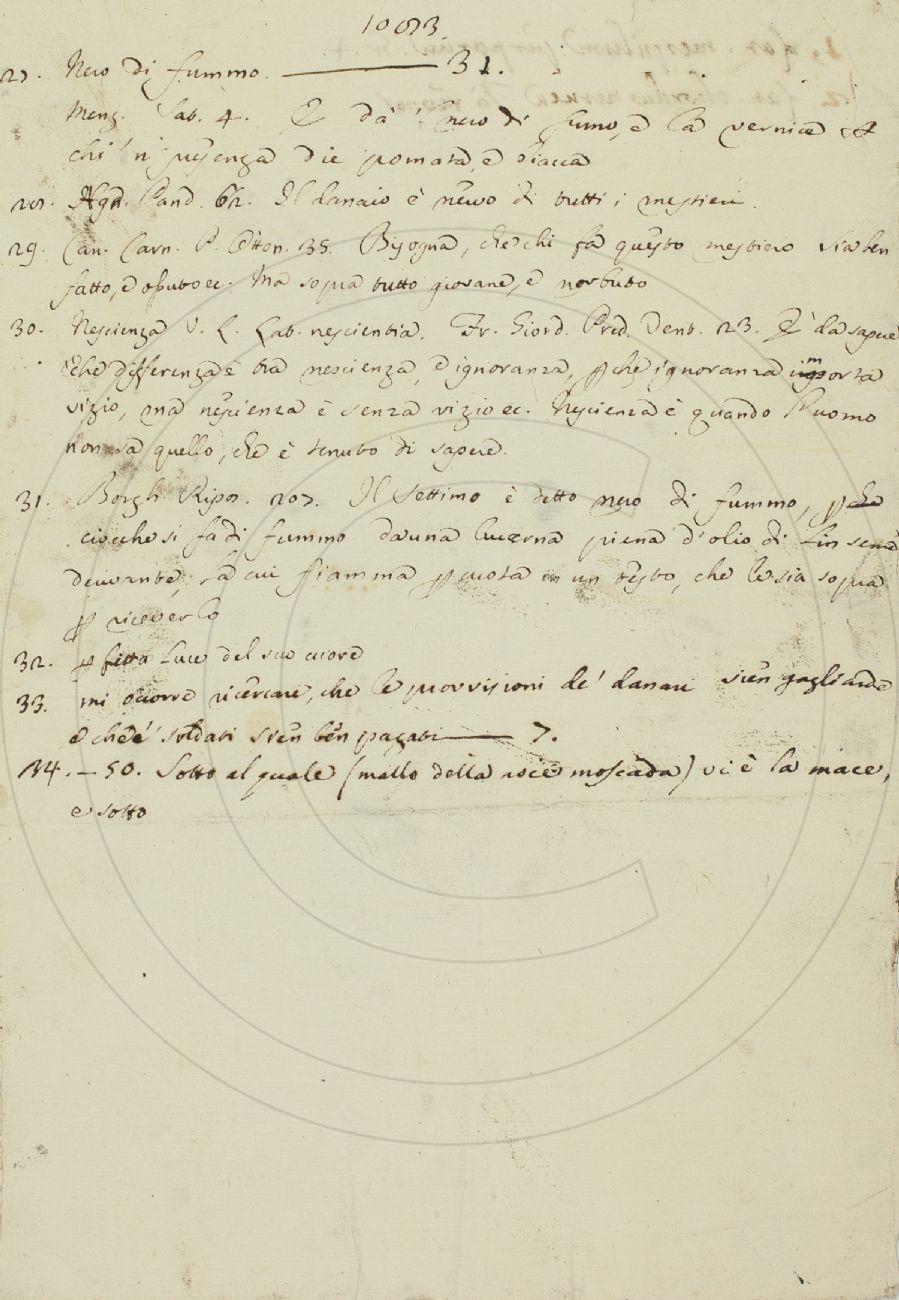 1083.
27. Nero di fummo. ——— 31.
Menz. Sat. 4. E dà 'l nero di fumo, e la vernice
chi 'n presenza die pomata, e biacca
28. Agn. Pand. 62. Il danaio è nervo di tutti i mestieri.
29. Can. Carn. P. Otton. 35. Bisogna, che chi fa questo mestiero sia ben
fatto, e ec. Ma sopra tutto giovane, e norbuto
30. Nescienza V. L. Lat. nescientia. Fr. Giord. Pred. 23. E' da sapere
che differenza è tra nescienza, e ignoranza, pche ignoranza importa
vizio, ma nescienza è senza vizio ec. Nescienza è quando l'uomo
non sa quello, che è tenuto di sapere.
31. Borgh. Ripos. 207. Il settimo è detto nero di fummo, pche
ciocche si fa di fummo da una lucerna piena d'olio di lin seme
, la cui fiamma pcuota in un testo, che le sia sopra
p riceverlo
32. pfetta luce del suo cuore
33. mi occorre ricercare, che le provvisioni de' danari sien gagliarde
e che e' soldati sien ben pagati ——— 7.
34. – 50. Sotto al quale (mallo della noce moscada) vi è la mace,
e sotto